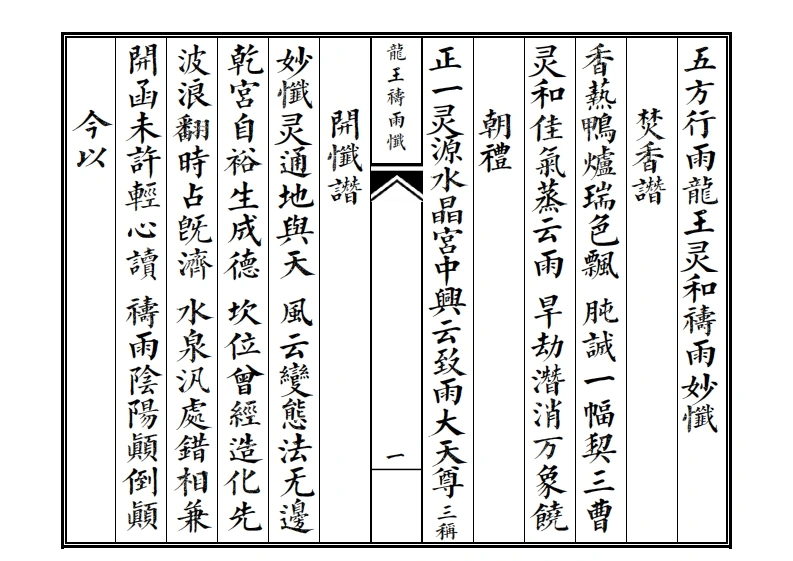 五方行雨龍王灵和禱雨妙懺
焚香讃
香爇鴨爐瑞色飄　肫誠一幅契三曹
灵和佳氣蒸云雨　旱劫潛消万象饒
朝禮
正一灵源水晶宮中興云致雨大天尊 三稱
龍王禱雨懺
一
開懺讃
妙懺灵通地與天　風云變態法无邊
乾宮自裕生成德　坎位曾經造化先
波浪翻時占既濟　水泉汎處錯相兼
開函未許輕心讀　禱雨陰陽顛倒顛
今以